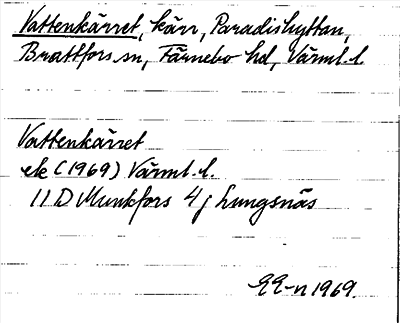 Vattenkärret, kärr, Paradishyttan,
Brattfors sn, Färnebo hd, Värml. l.
Vattenkärret
ek (1969) Värml. l.
11 D Munkfors 4 j Lungsnäs
1969.